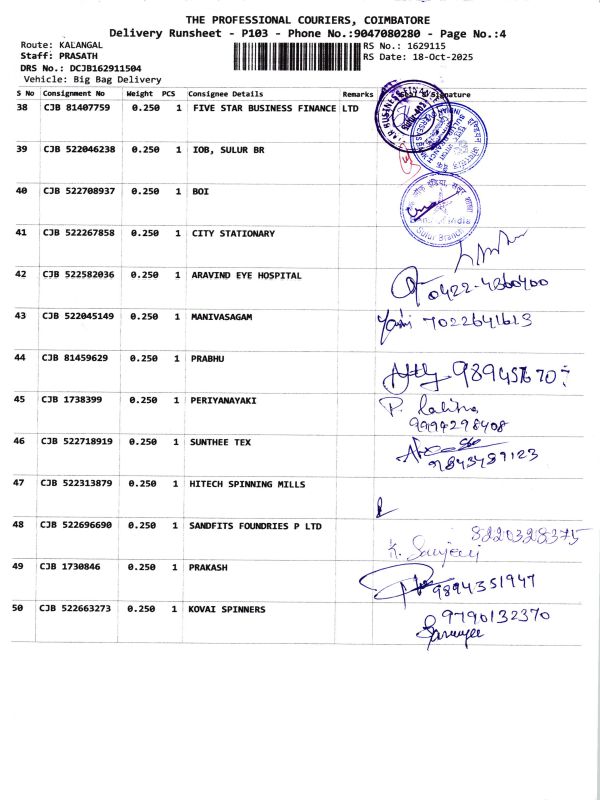 THE PROFESSIONAL COURIERS, COIMBATORE
Delivery Runsheet - P103 - Phone No.:9047080280 - Page No.:4
Route: KALANGAL RS No.: 1629115
Staff: PRASATH RS Date: 18-Oct-2025
DRS No.: DCJB162911504
Vehicle: Big Bag Delivery
S No Consignment No Weight PCS Consignee Details Remarks Signature
38 CJB 81407759 0.250 1 FIVE STAR BUSINESS FINANCE LTD
39 CJB 522046238 0.250 1 IOB, SULUR BR
40 CJB 522708937 0.250 1 BOI
Sulur Branch
41 CJB 522267858 0.250 1 CITY STATIONARY
42 CJB 522582036 0.250 1 ARAVIND EYE HOSPITAL
0422-4360400
43 CJB 522045149 0.250 1 MANIVASAGAM
7022641613
44 CJB 81459629 0.250 1 PRABHU
45 CJB 1738399 0.250 1 PERIYANAYAKI
P. Lalitha
9994298408
46 CJB 522718919 0.250 1 SUNTHEE TEX
9843489123
47 CJB 522313879 0.250 1 HITECH SPINNING MILLS
48 CJB 522696690 0.250 1 SANDFITS FOUNDRIES P LTD
8220328375
49 CJB 1730846 0.250 1 PRAKASH
9894351947
50 CJB 522663273 0.250 1 KOVAI SPINNERS
9790132370